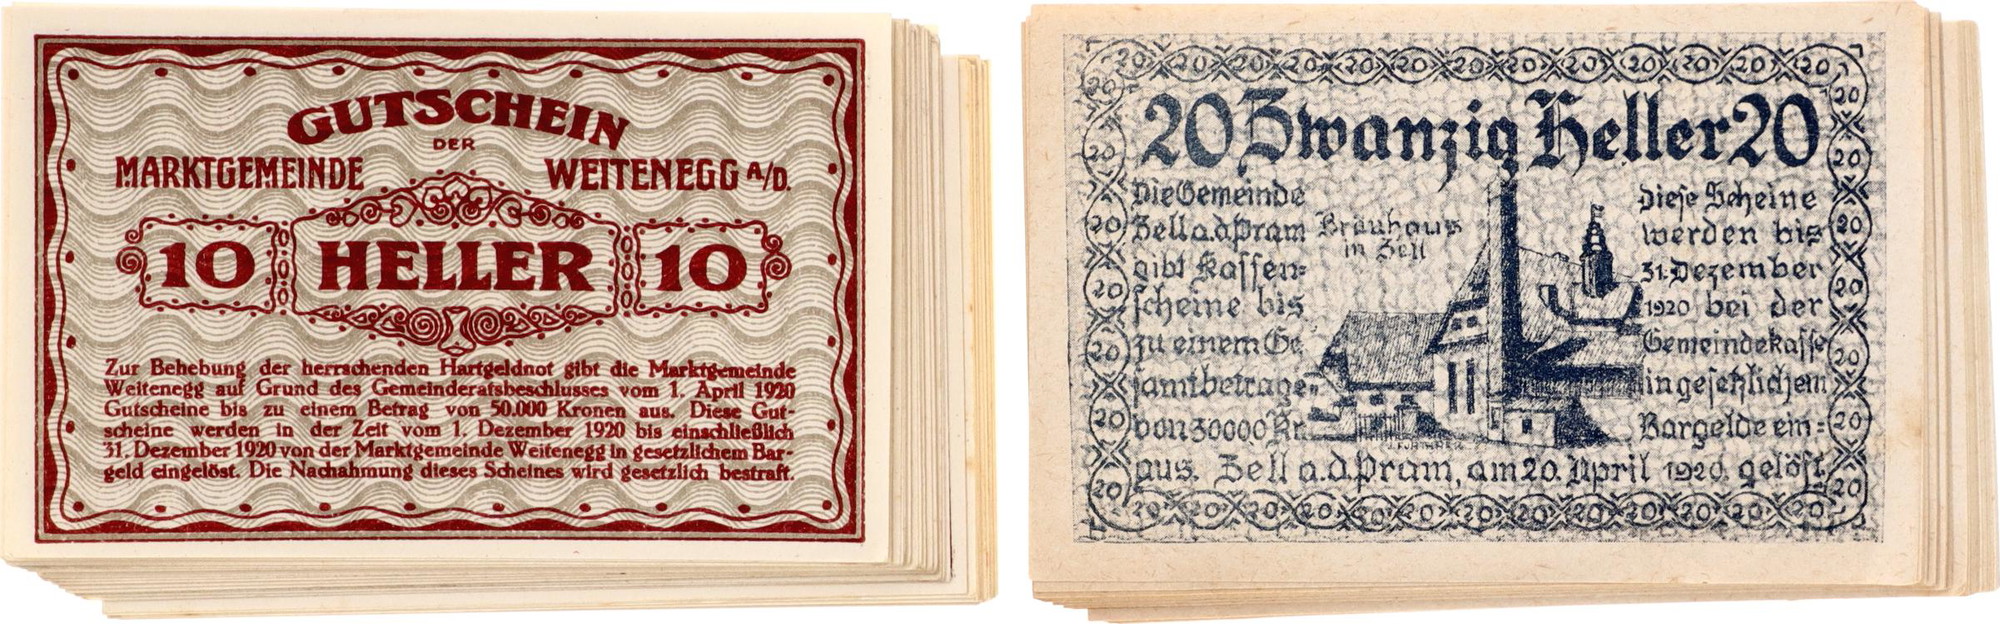 GUTSCHEIN
DER
MARKTGEMEINDE WEITENEGG A/D.
10 HELLER 10
Zur Behebung der herrschenden Hartgeldnot gibt die Marktgemeinde
Weitenegg auf Grund des Gemeinderatsbeschlusses vom 1. April 1920
Gutscheine bis zu einem Betrag von 50.000 Kronen aus. Diese Gut-
scheine werden in der Zeit vom 1. Dezember 1920 bis einschließlich
31. Dezember 1920 von der Marktgemeinde Weitenegg in gesetzlichem Bar-
geld eingelöst. Die Nachahmung dieses Scheines wird gesetzlich bestraft.
20 Zwanzig Heller 20
Die Gemeinde
Zell a.d. Pram
gibt Kassen=
scheine bis
zu einem Ge
samtbetrage
von 30000 Kr.
Bräuhaus
in Zell
Diese Scheine
werden bis
31. Dezember
1920 bei der
Gemeindekasse
in gesetzlichem
Bargelde ein=
aus. Zell a.d. Pram, am 20. April 1920. gelöst.